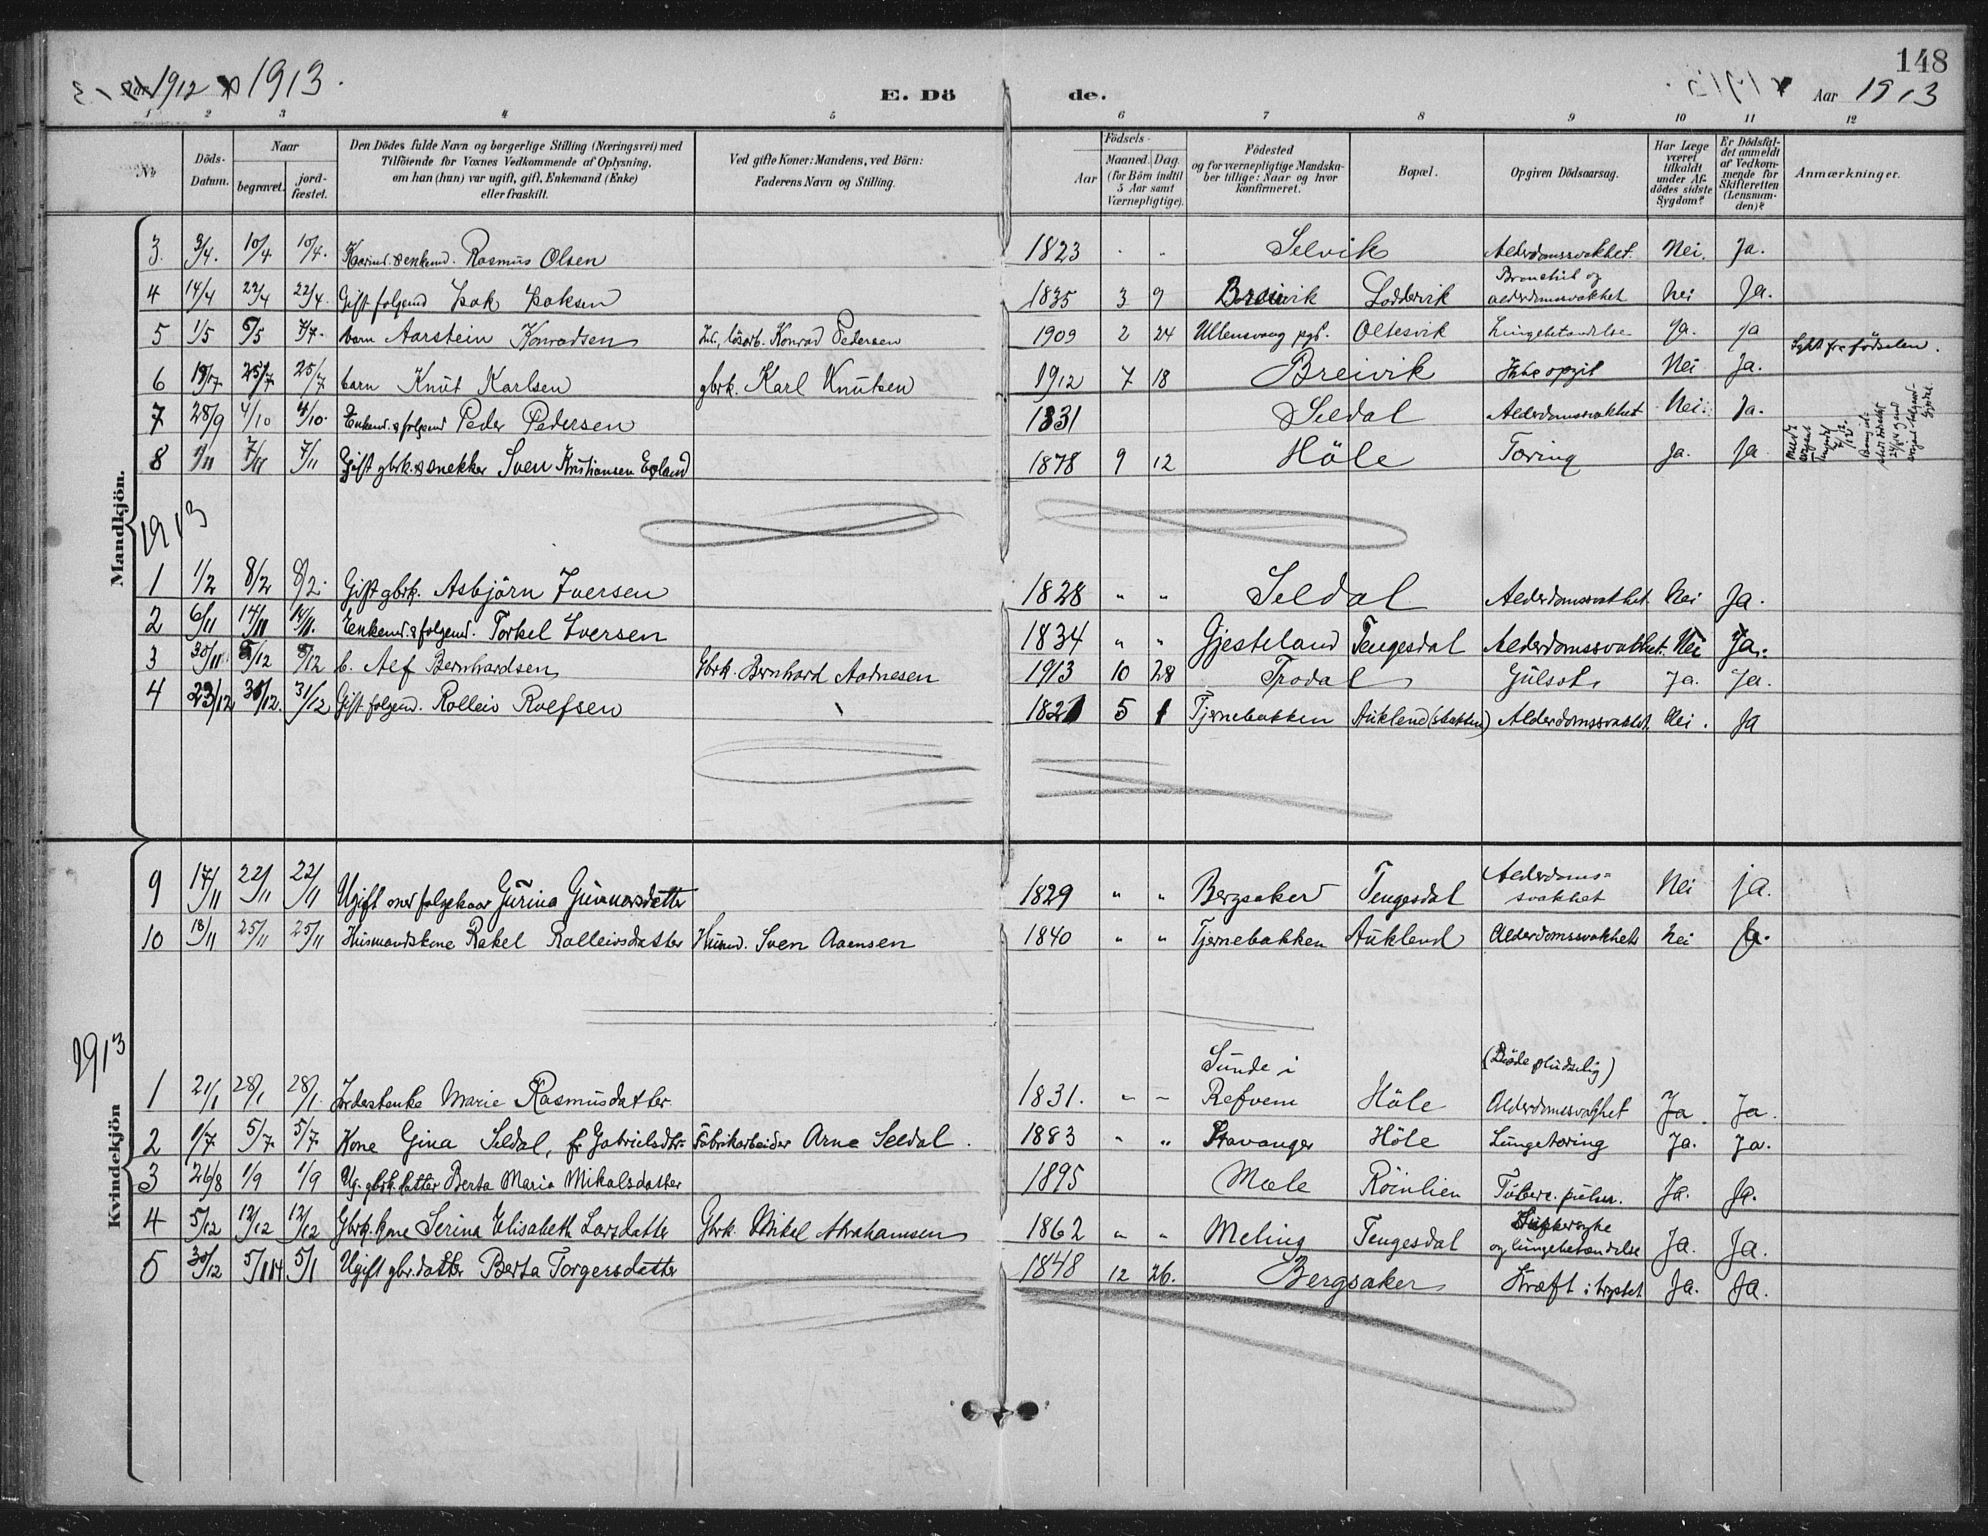 148
1912 & 1913.
E. Dö de.
Aar 1913
1 2 3 4 5 6 7 8 9 10 11 12
No
Döds-Datum.
Naar
begravet.
jord-fæstet.
Den Dödes fulde Navn og borgerlige Stilling (Næringsvei) med
Tilföiende for Voxnes Vedkommende af Oplysning,
om han (hun) var ugift, gift, Enkemand (Enke)
eller fraskilt.
Ved gifte Koner: Mandens, ved Börn:
Faderens Navn og Stilling.
Födsels-
Aar
Maaned. Dag.
(for Börn indtil
5 Aar samt
Værnepligtige).
Födested
og for værnepligtige Mandska-
ber tillige: Naar og hvor
konfirmeret.
Bopæl.
Opgiven Dödsaarsag.
Har Læge
været
tilkaldt
under Af-
dödes sidste
Sygdom?
Er Dödsfal-
det anmeldt
af Vedkom-
mende for
Skifteretten
(Lensman-
den)?
Anmærkninger.
Mandkjön.
3. 3/4. 10/4 10/4. Kaarmd. & enkemd. Rasmus Olsen 1823 " " Selvik Alderdomssvakhet. Nei. Ja.
4 14/4 22/4 22/4. Gift folgemd Isak Isaksen 1835 3 9 Breivik Loddervik Bronchit og alderdomssvakhet Nei Ja.
5 1/5 5/5 7/7. barn Aarstein Konradsen Konrad Pedersen 1909 2 24 Ullensvang pgf. Oltesvik Lungebetændelse Ja. ja
6 19/7 25/7 25/7 barn Knut Karlsen gbrk. Karl Knutsen 1912 7 18 Breivik Ikke opgit Nei Ja. Sykt fra födselen.
7 28/9 4/10 4/10. Enkemd. & folgemd Peder Pedersen 1831 Seldal Alderdomssvakhet Nei. Ja.
8 1/11 7/11 7/11 Gift gbrk. & snekker Sven Kristiansen Epland 1878 9 12 Höle Tæring Ja. Ja
1913
1 1/2 8/2 8/2. Gift gbrk. Asbjörn Iversen 1828 " " Seldal Alderdomssvakhet. Nei Ja.
2 6/11 14/11 14/11. Enkemd. & folgemd. Torkel Iversen 1834 " " Gjesteland Tengesdal Alderdomssvakhet. Nei Ja.
3 30/11. 5/12 5/12 b. Alf Bernhardsen Gbrk. Bernhard Aadnesen 1913 10 28 Trodal Gulsot. Ja. Ja.
4 23/12 31/12. 31/12 Gift folgemd. Rolleiv Roelfsen 1821 5 1 Tjernebakken Aukland (Bakken) Alderdomssvakhet. Nei. Ja
Kvindekjön
9 14/11 22/11 22/11 Ugift Gurina Gunnarsdatter 1829 " " Bergsaker Tengesdal Alderdoms=
svakhet Nei ja.
10 18/11 25/11 25/11 Husmandskone Rakel Rolleivsdatter Husmd. Sven Aamsen 1840 " " Tjernebakken Auklend Alderdomssvakhets Nei Ja.
1913
1 21/1 28/1 28/1. Marie Rasmusdatter. 1831. " " Sunde i
Refvem Höle (Döde pludselig)
Alderdomssvakhet Ja Ja.
2 1/7 5/7 5/7. Kone Gina Seldal, f. Gabrielsdtr Fabrikarbeider Arne Seldal. 1883 " " Stavanger Höle Lungetæring Ja. Ja.
3 26/8 1/9 1/9 Ug. gbrk.datter Berta Maria Mikalsdatter 1895 Mæle Röinlien Tuberc. pulm. Ja. Ja.
4 5/12 12/12 12/12 Gbrk.kone Serina Elisabeth Larsdatter Gbrk. Mikal Abrahamsen 1862 " " Meling Tengesdal Sukkersyke
og lungebetændelse Ja. Ja.
5 30/12 5/1 14 5/1 Ugift gbr.datter Berta Torgersdatter 1848 12 26. Bergsaker Kræft i brystet Ja. Ja.